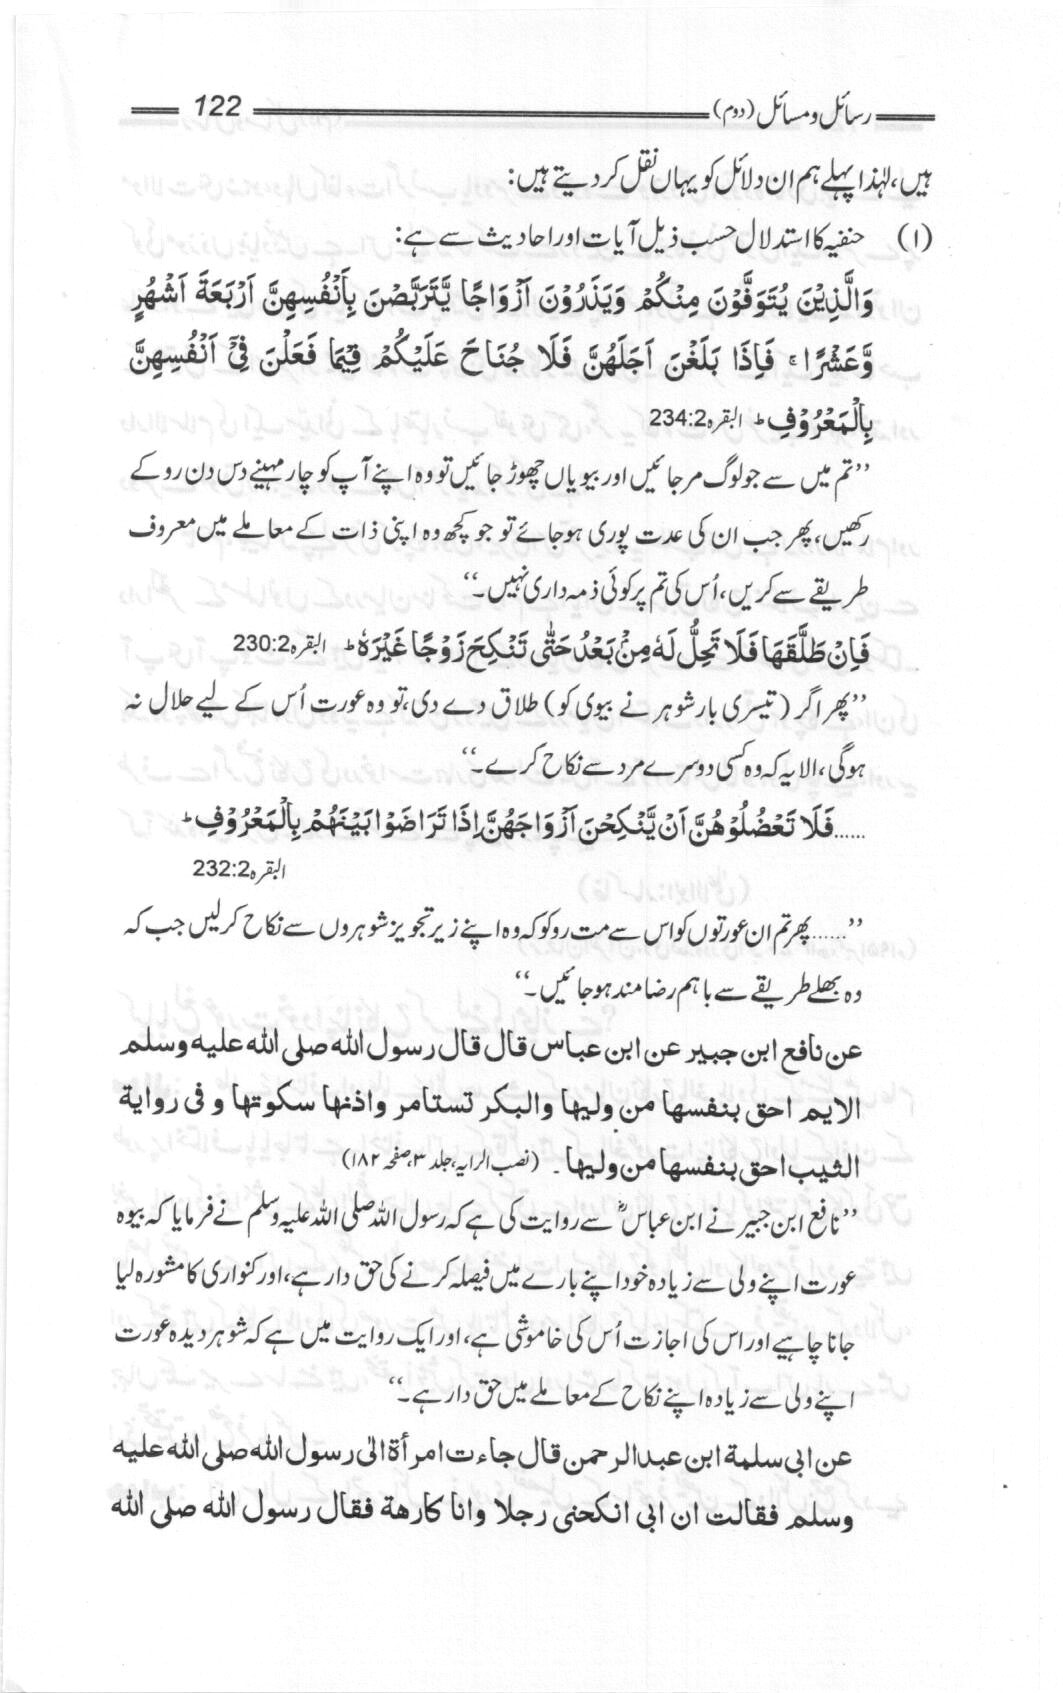 رسائل و مسائل (دوم) 122
ہیں، لہٰذا پہلے ہم ان دلائل کو یہاں نقل کر دیتے ہیں:
(۱) حنفیہ کا استدلال حسب ذیل آیات اور احادیث سے ہے:
وَالَّذِیْنَ یُتَوَفَّوْنَ مِنْکُمْ وَیَذَرُوْنَ اَزْوَاجًا یَّتَرَبَّصْنَ بِاَنْفُسِهِنَّ اَرْبَعَةَ اَشْهُرٍ
وَّعَشْرًا ۚ فَاِذَا بَلَغْنَ اَجَلَهُنَّ فَلَا جُنَاحَ عَلَیْکُمْ فِیْمَا فَعَلْنَ فِیْۤ اَنْفُسِهِنَّ
بِالْمَعْرُوْفِ ؕ البقرہ 234:2
’’تم میں سے جو لوگ مر جائیں اور بیویاں چھوڑ جائیں تو وہ اپنے آپ کو چار مہینے دس دن روکے
رکھیں، پھر جب ان کی عدت پوری ہو جائے تو جو کچھ وہ اپنی ذات کے معاملے میں معروف
طریقے سے کریں، اُس کی تم پر کوئی ذمہ داری نہیں۔‘‘
فَاِنْ طَلَّقَهَا فَلَا تَحِلُّ لَهٗ مِنْۢ بَعْدُ حَتّٰی تَنْکِحَ زَوْجًا غَیْرَهٗ ؕ البقرہ 230:2
’’پھر اگر (تیسری بار شوہر نے بیوی کو) طلاق دے دی، تو وہ عورت اُس کے لیے حلال نہ
ہوگی، الا یہ کہ وہ کسی دوسرے مرد سے نکاح کرے۔‘‘
......فَلَا تَعْضُلُوْهُنَّ اَنْ یَّنْکِحْنَ اَزْوَاجَهُنَّ اِذَا تَرَاضَوْا بَیْنَهُمْ بِالْمَعْرُوْفِ ؕ
البقرہ 232:2
’’......پھر تم ان عورتوں کو اس سے مت روکو کہ وہ اپنے زیر تجویز شوہروں سے نکاح کر لیں جب کہ
وہ بھلے طریقے سے باہم رضا مند ہو جائیں۔‘‘
عن نافع ابن جبیر عن ابن عباس قال قال رسول الله صلی الله علیه وسلم
الایم احق بنفسها من ولیها والبکر تستامر واذنها سکوتها و فی روایة
الثیب احق بنفسها من ولیها۔ (نصب الرایہ، جلد ۳، صفحہ ۱۸۲)
’’نافع ابن جبیر نے ابن عباسؓ سے روایت کی ہے کہ رسول اللہ صلی اللہ علیہ وسلم نے فرمایا کہ بیوہ
عورت اپنے ولی سے زیادہ خود اپنے بارے میں فیصلہ کرنے کی حق دار ہے، اور کنواری کا مشورہ لیا
جانا چاہیے اور اس کی اجازت اُس کی خاموشی ہے، اور ایک روایت میں ہے کہ شوہر دیدہ عورت
اپنے ولی سے زیادہ اپنے نکاح کے معاملے میں حق دار ہے۔‘‘
عن ابی سلمة ابن عبدالرحمن قال جاءت امرأة الی رسول الله صلی الله علیه
وسلم فقالت ان ابی انکحنی رجلا وانا کارهة فقال رسول الله صلی الله